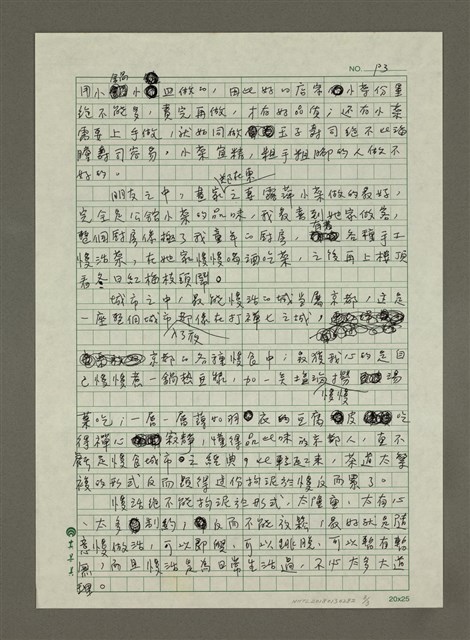 NO P3
用小鍋小皿做的，因此好的店家小菜份量
絕不能多，賣完再做，才有好品質；還有小菜
需要上手做，就如同做玉子壽司絕不比海
膽壽司容易，小菜宜精，粗手粗腳的人做不
好的。
朋友之中，畫家鄭在東之妻露萍小菜做的最好，
完全是公館小菜的品味，我最喜到她家做客，
整個廚房像極了我童年的廚房，有著各種手工
慢活菜，在她家慢慢喝酒吃菜，之後再上樓頂
看冬日紅梅枝頭開。
城市之中，最能慢活的城當屬京都，這是
一座整個城市都像在打禪七之城，
入了夜
京都的各種慢食中；最獲我心的是自
己慢慢煮一鍋熱豆漿，加一矣鹽滷攪湯
慢慢
葉吃；一層一層薄如羽衣的豆腐皮吃
得禪心寂靜，懂得品此味的京都人，真不
虧是慢食城市之經典。比較起來，茶道太繁
複的形式反而顯得迷份拘泥於慢反而累了。
慢活絕不能拘泥於形式，太隆重、太有心
、太多制約，反而不能放鬆，最好就是隨
意慢做活，可以即興，可以跳脫，可以暫有暫
無，而且慢活是為日常生活過，不必太多大道
理。
20x25